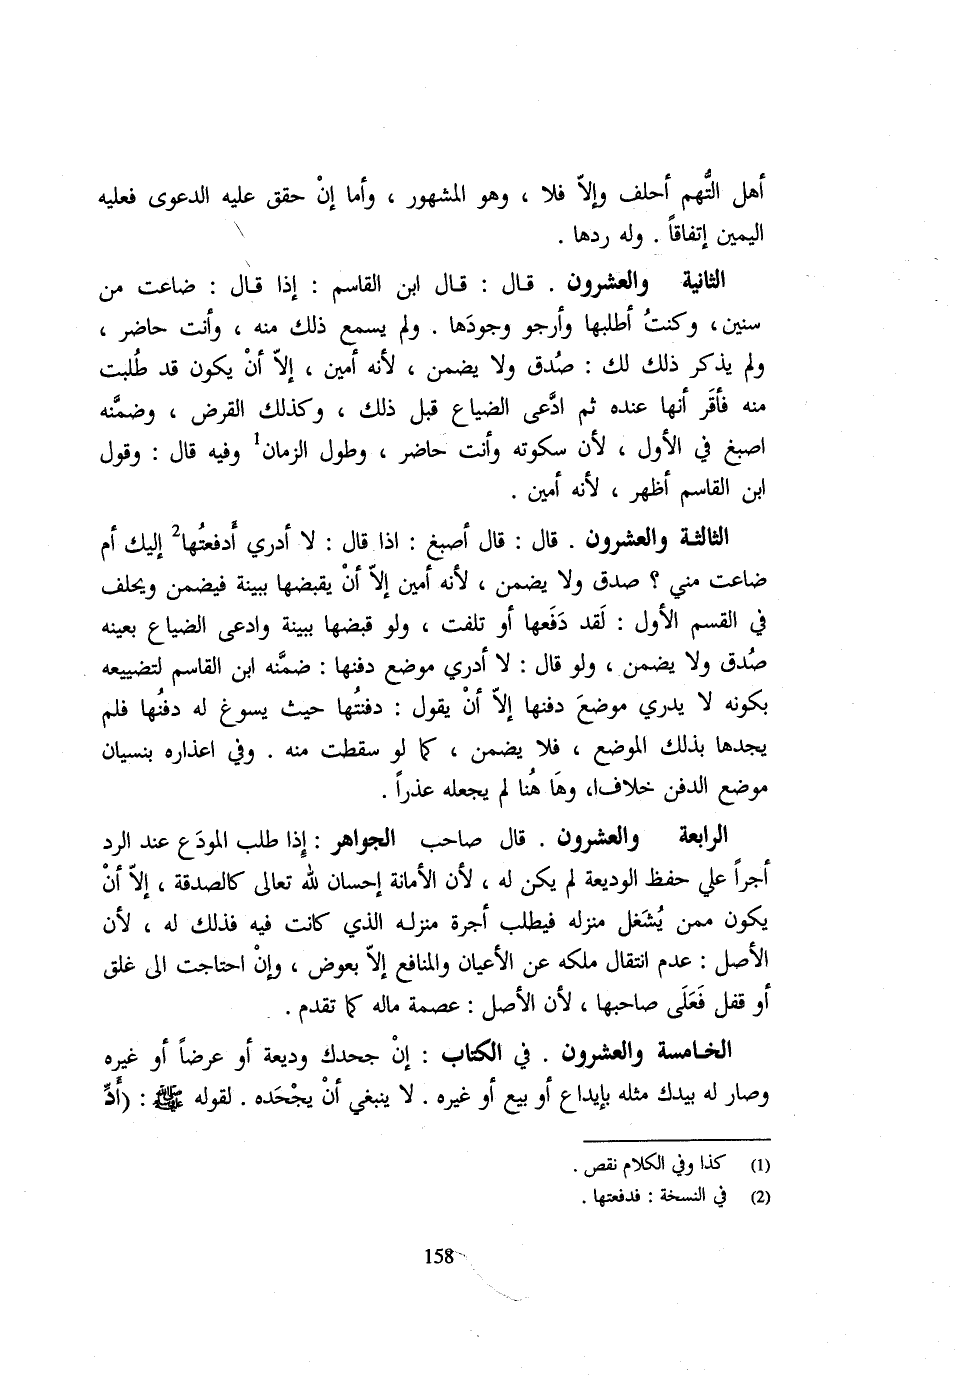 أهل التُّهم أحلف وإلاّ فلا ، وهو المشهور ، وأما إنْ حقق عليه الدعوى فعليه
اليمين إتفاقاً . وله ردها .
الثانية والعشرون . قال : قال ابن القاسم : إذا قال : ضاعت من
سنين، وكنتُ أطلبها وأرجو وجودَها . ولم يسمع ذلك منه ، وأنت حاضر ،
ولم يذكر ذلك لك : صُدق ولا يضمن ، لأنه أمين ، إلاّ أنْ يكون قد طُلبت
منه فأقَر أنها عنده ثم ادَّعى الضياع قبل ذلك ، وكذلك القرض ، وضمَّنه
اصبغ في الأول ، لأن سكوته وأنت حاضر ، وطول الزمان1 وفيه قال : وقول
ابن القاسم أظهر ، لأنه أمين .
الثالثة والعشرون . قال : قال أصبغ : اذا قال : لا أدري أَدفعتُها2 إليك أم
ضاعت مني ؟ صدق ولا يضمن ، لأنه أمين إلاّ أنْ يقبضها ببينة فيضمن ويحلف
في القسم الأول : لَقد دَفَعها أو تلفت ، ولو قبضها ببينة وادعى الضياع بعينه
صُدق ولا يضمن ، ولو قال : لا أدري موضع دفنها : ضمَّنه ابن القاسم لتضييعه
بكونه لا يدري موضعَ دفنها إلاّ أنْ يقول : دفنتُها حيث يسوغ له دفنُها فلم
يجدها بذلك الموضع ، فلا يضمن ، كما لو سقطت منه . وفي اعذاره بنسيان
موضع الدفن خلافا، وهَا هُنا لم يجعله عذراً .
الرابعة والعشرون . قال صاحب الجواهر : إِذا طلب المودَع عند الرد
أجراً علي حفظ الوديعة لم يكن له ، لأن الأمانة إحسان لله تعالى كالصدقة ، إلاّ أنْ
يكون ممن يُشغَل منزله فيطلب أجرة منزله الذي كانت فيه فذلك له ، لأن
الأصل : عدم انتقال ملكه عن الأعيان والمنافع إلاّ بعوض ، وإنْ احتاجت الى غلق
أو قفل فَعَلَى صاحبها ، لأن الأصل : عصمة ماله كما تقدم .
الخامسة والعشرون . في الكتاب : إنْ جحدك وديعة أو عرضاً أو غيره
وصار له بيدك مثله بإيداع أو بيع أو غيره . لا ينبغي أنْ يجْحَده . لقوله ﷺ : (أَدِّ
(1) كذا وفي الكلام نقص .
(2) في النسخة : فدفعتها .
158